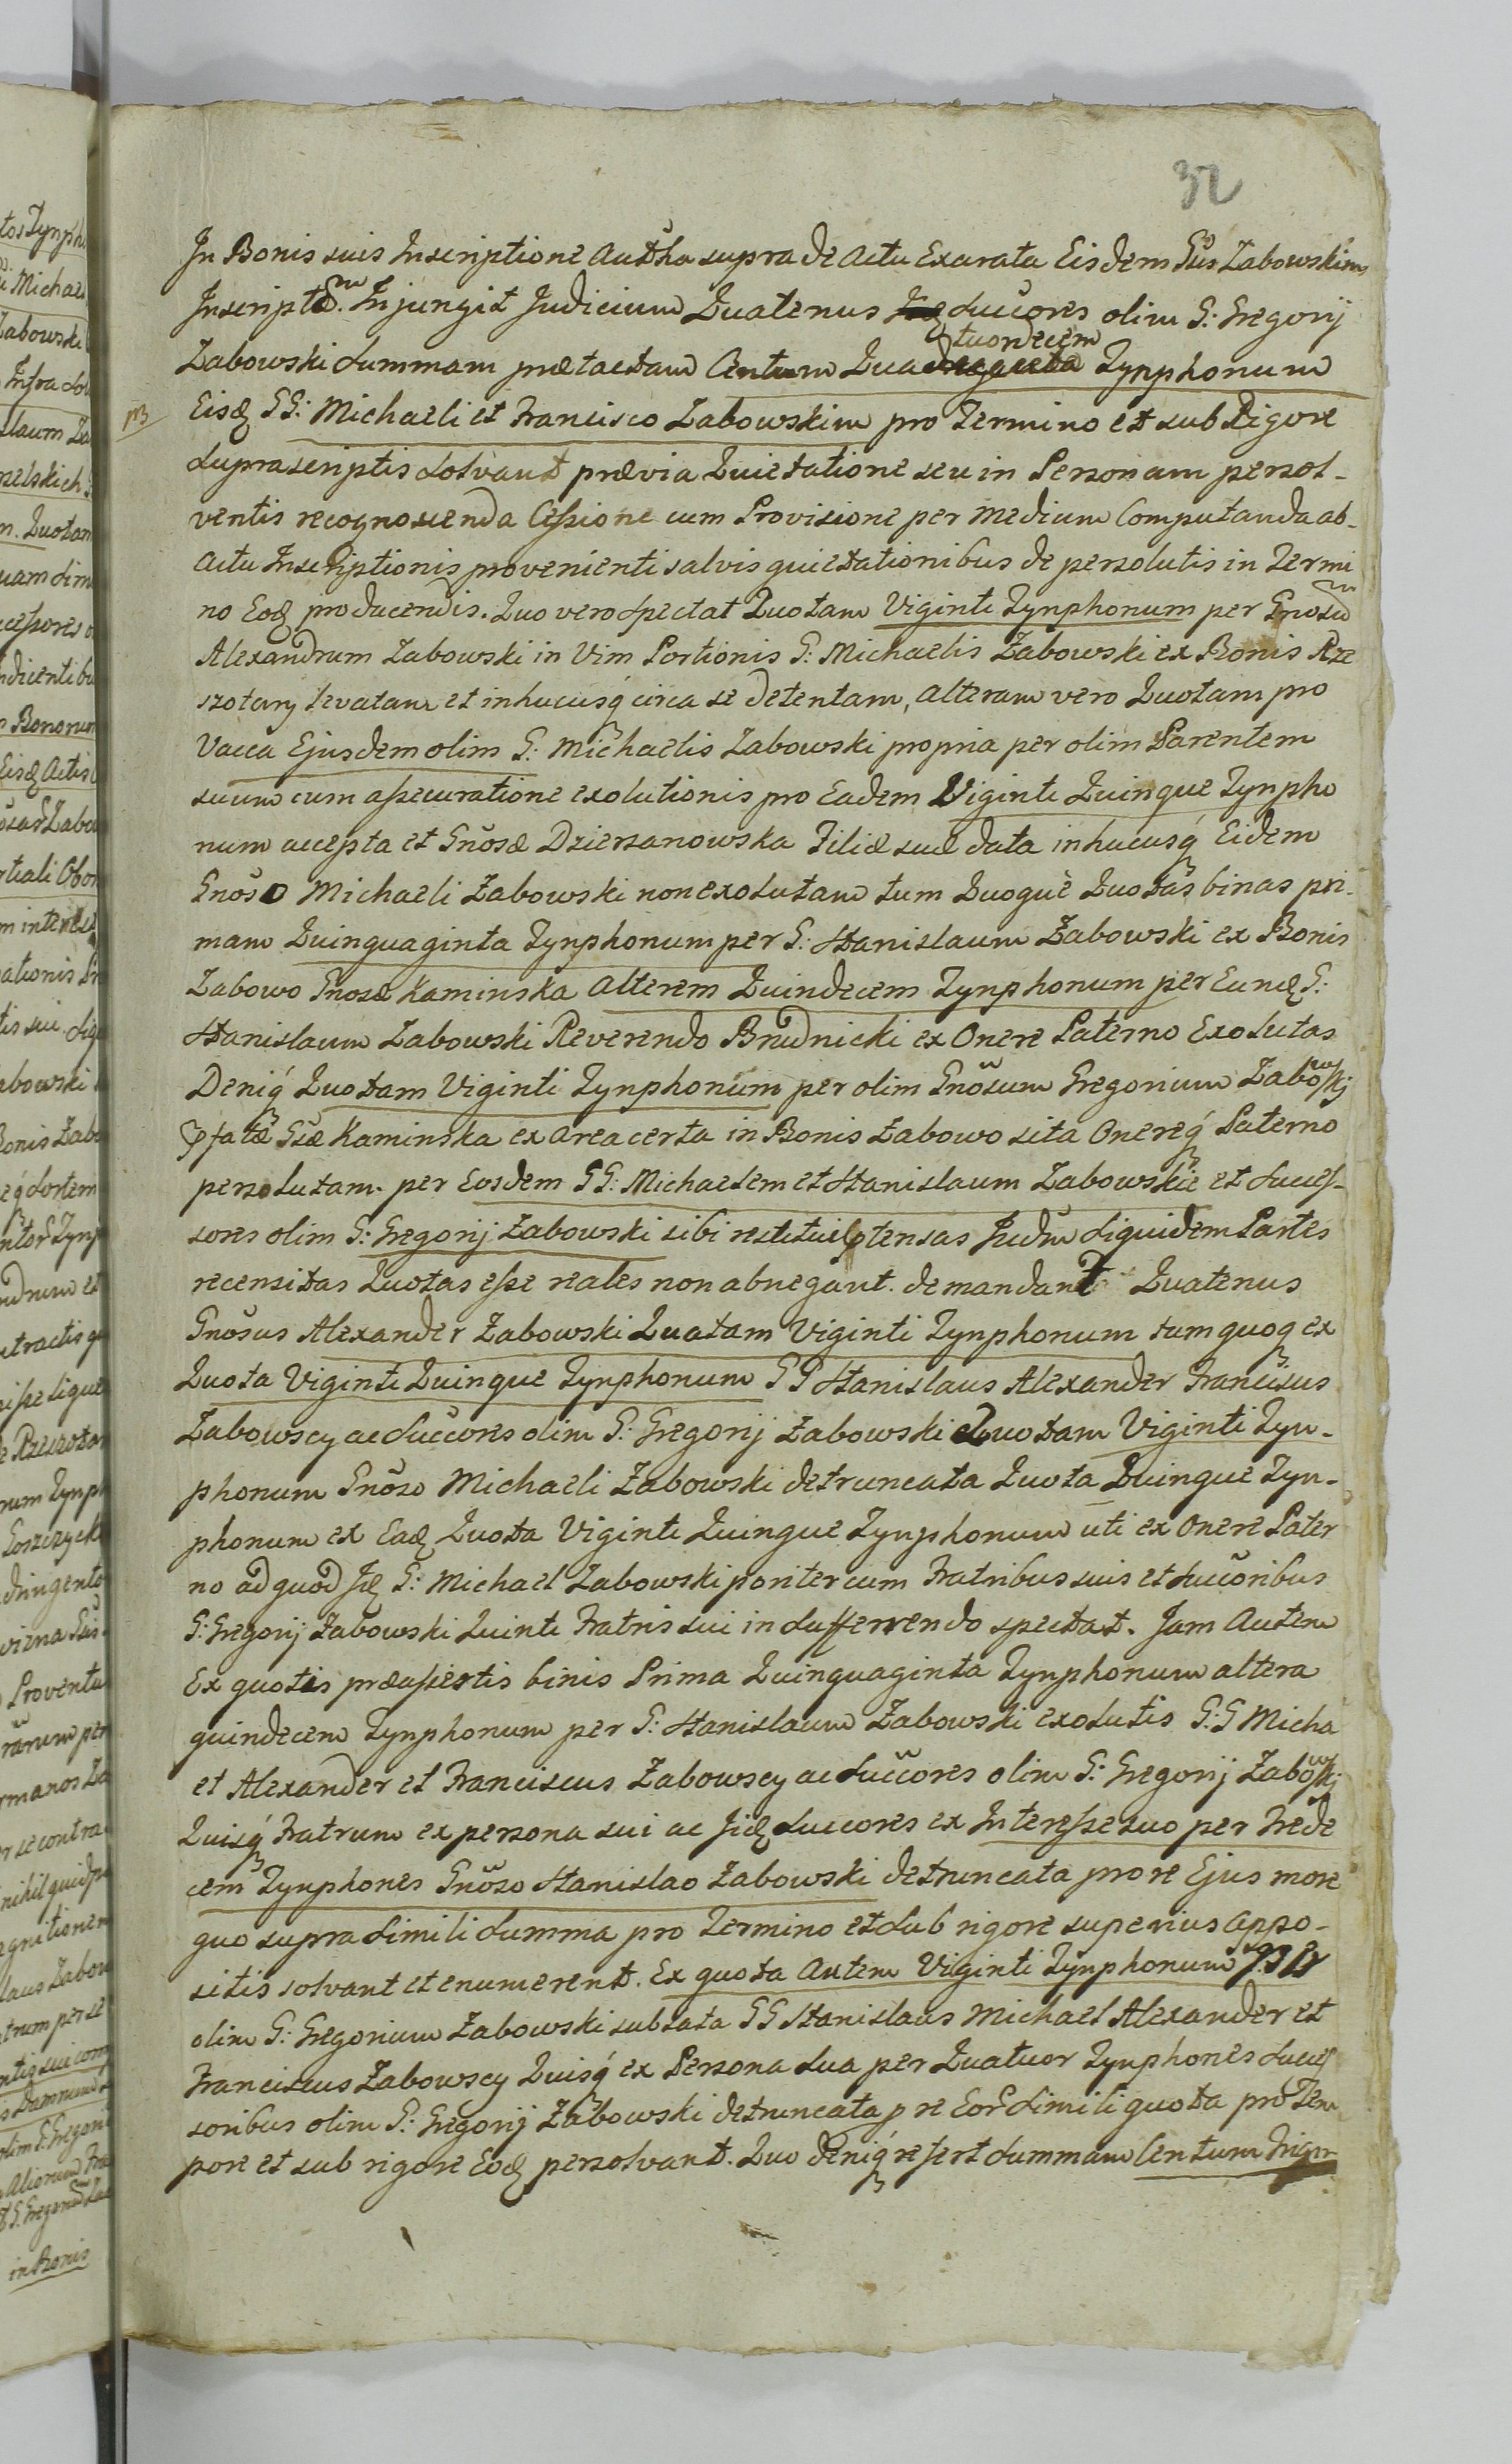 32
In Bonis suis Inscriptione Autha supra de Actu Exarata Eisdem Gsis Zabowskim
Inscriptam. Injungit Judicium Quatenus Succores olim G: Gregorij
tuordecem
Zabowski Summam prætactam Centum Qua Tynphonum
Eisd GG: Michaeli et Francisco Zabowskim pro Termino et sub Rigore
supra scriptis Solvant prævia Quietatione seu in Personam persol-
ventis recognoscenda Cessione cum Provisione per Medium Computanda ab-
Actu Inscriptionis provenienti salvis quietationibus de persolutis in Termi
no Eod producendis. Quo vero Spectat Quotam Viginti Tynphonum per Gnosum
Alexandrum Zabowski in Vim Portionis G: Michaelis Zabowski ex Bonis Rze
szotary levatam et inhucusq circa se detentam, alteram vero Quotam pro
Vacca Ejusdem olim G: Michaelis Zabowski propria per olim Parentem
suum cum assecuratione exolutionis pro Eadem Viginti Quinque Tynpho
num accepta et Gnosæ Dzierzanowska Filiæ suæ data inhucusq Eidem
Gnoso Michaeli Zabowski non exolutam tum Quoque Quotas binas pri-
mam Quinquaginta Tynphonum per G: Stanislaum Zabowski ex Bonis
Zabowo Gnosæ Kaminska alterem Quindecem Tynphonum per Eund G:
Stanislaum Zabowski Reverendo Brudnicki ex Onere Paterno Exolutas
Deniq Quotam Viginti Tynphonum per olim Gnosum Gregorium Zabowskj
pfatæ Gsæ Kaminska ex area certa in Bonis Zabowo sita Onereq Paterno
persolutam. per Eosdem GG: Michaelem et Stanislaum Zabowskie et Succes-
sores olim G: Gregorij Zabowski sibi restitui ptensas Judm Siquidem Partes
recensitas Quotas esse reales non abnegant. demandant Quatenus
Gnosus Alexander Zabowski Quotam Viginti Tynphonum tum quoq ex
Quota Viginti Quinque Tynphonum GG Stanislaus Alexander Francisus
Zabowscy ac Succores olim G: Gregorij Zabowski Quotam Viginti Tyn-
phonum Gnoso Michaeli Zabowski detruncata Quota Quinque Tyn-
phonum ex Ead Quota Viginti Quinque Tynphonum uti ex Onere Pater
no ad quod Jd G: Michael Zabowski pariter cum Fratribus suis et Succoribus
G: Gregorij Zabowski Quinti Fratris sui in Sufferrendo spectat. Jam Autem
Ex quotis præassertis binis Prima Quinquaginta Tynphonum altera
quindecem Tynphonum per G: Stanislaum Zabowski exolutis G:G Micha
et Alexander et Franciscus Zabowscy ac Succores olim G: Gregorij Zabowskj
Quisq Fratrum ex persona sui ac Jid Succores ex Interesse suo per Trede
cem Tynphones Gnoso Stanislao Zabowski detruncata pro re Ejus more
quo supra Simili Summa pro Termino et Sub rigore superius appo-
sitis solvant et enumerent. Ex quota Autem Viginti Tynphonum per
olim G: Gregorium Zabowski sublata GG Stanislaus Michael Alexander et
Franciscus Zabowscy Quisq ex Persona Sua per Quatuor Tynphones Succes
soribus olim G: Gregorij Zabowski detruncata p re Eor Simili quota pro Tem
pore et sub rigore Eod persolvant. Quo deniq refert Summam Centum Trigin